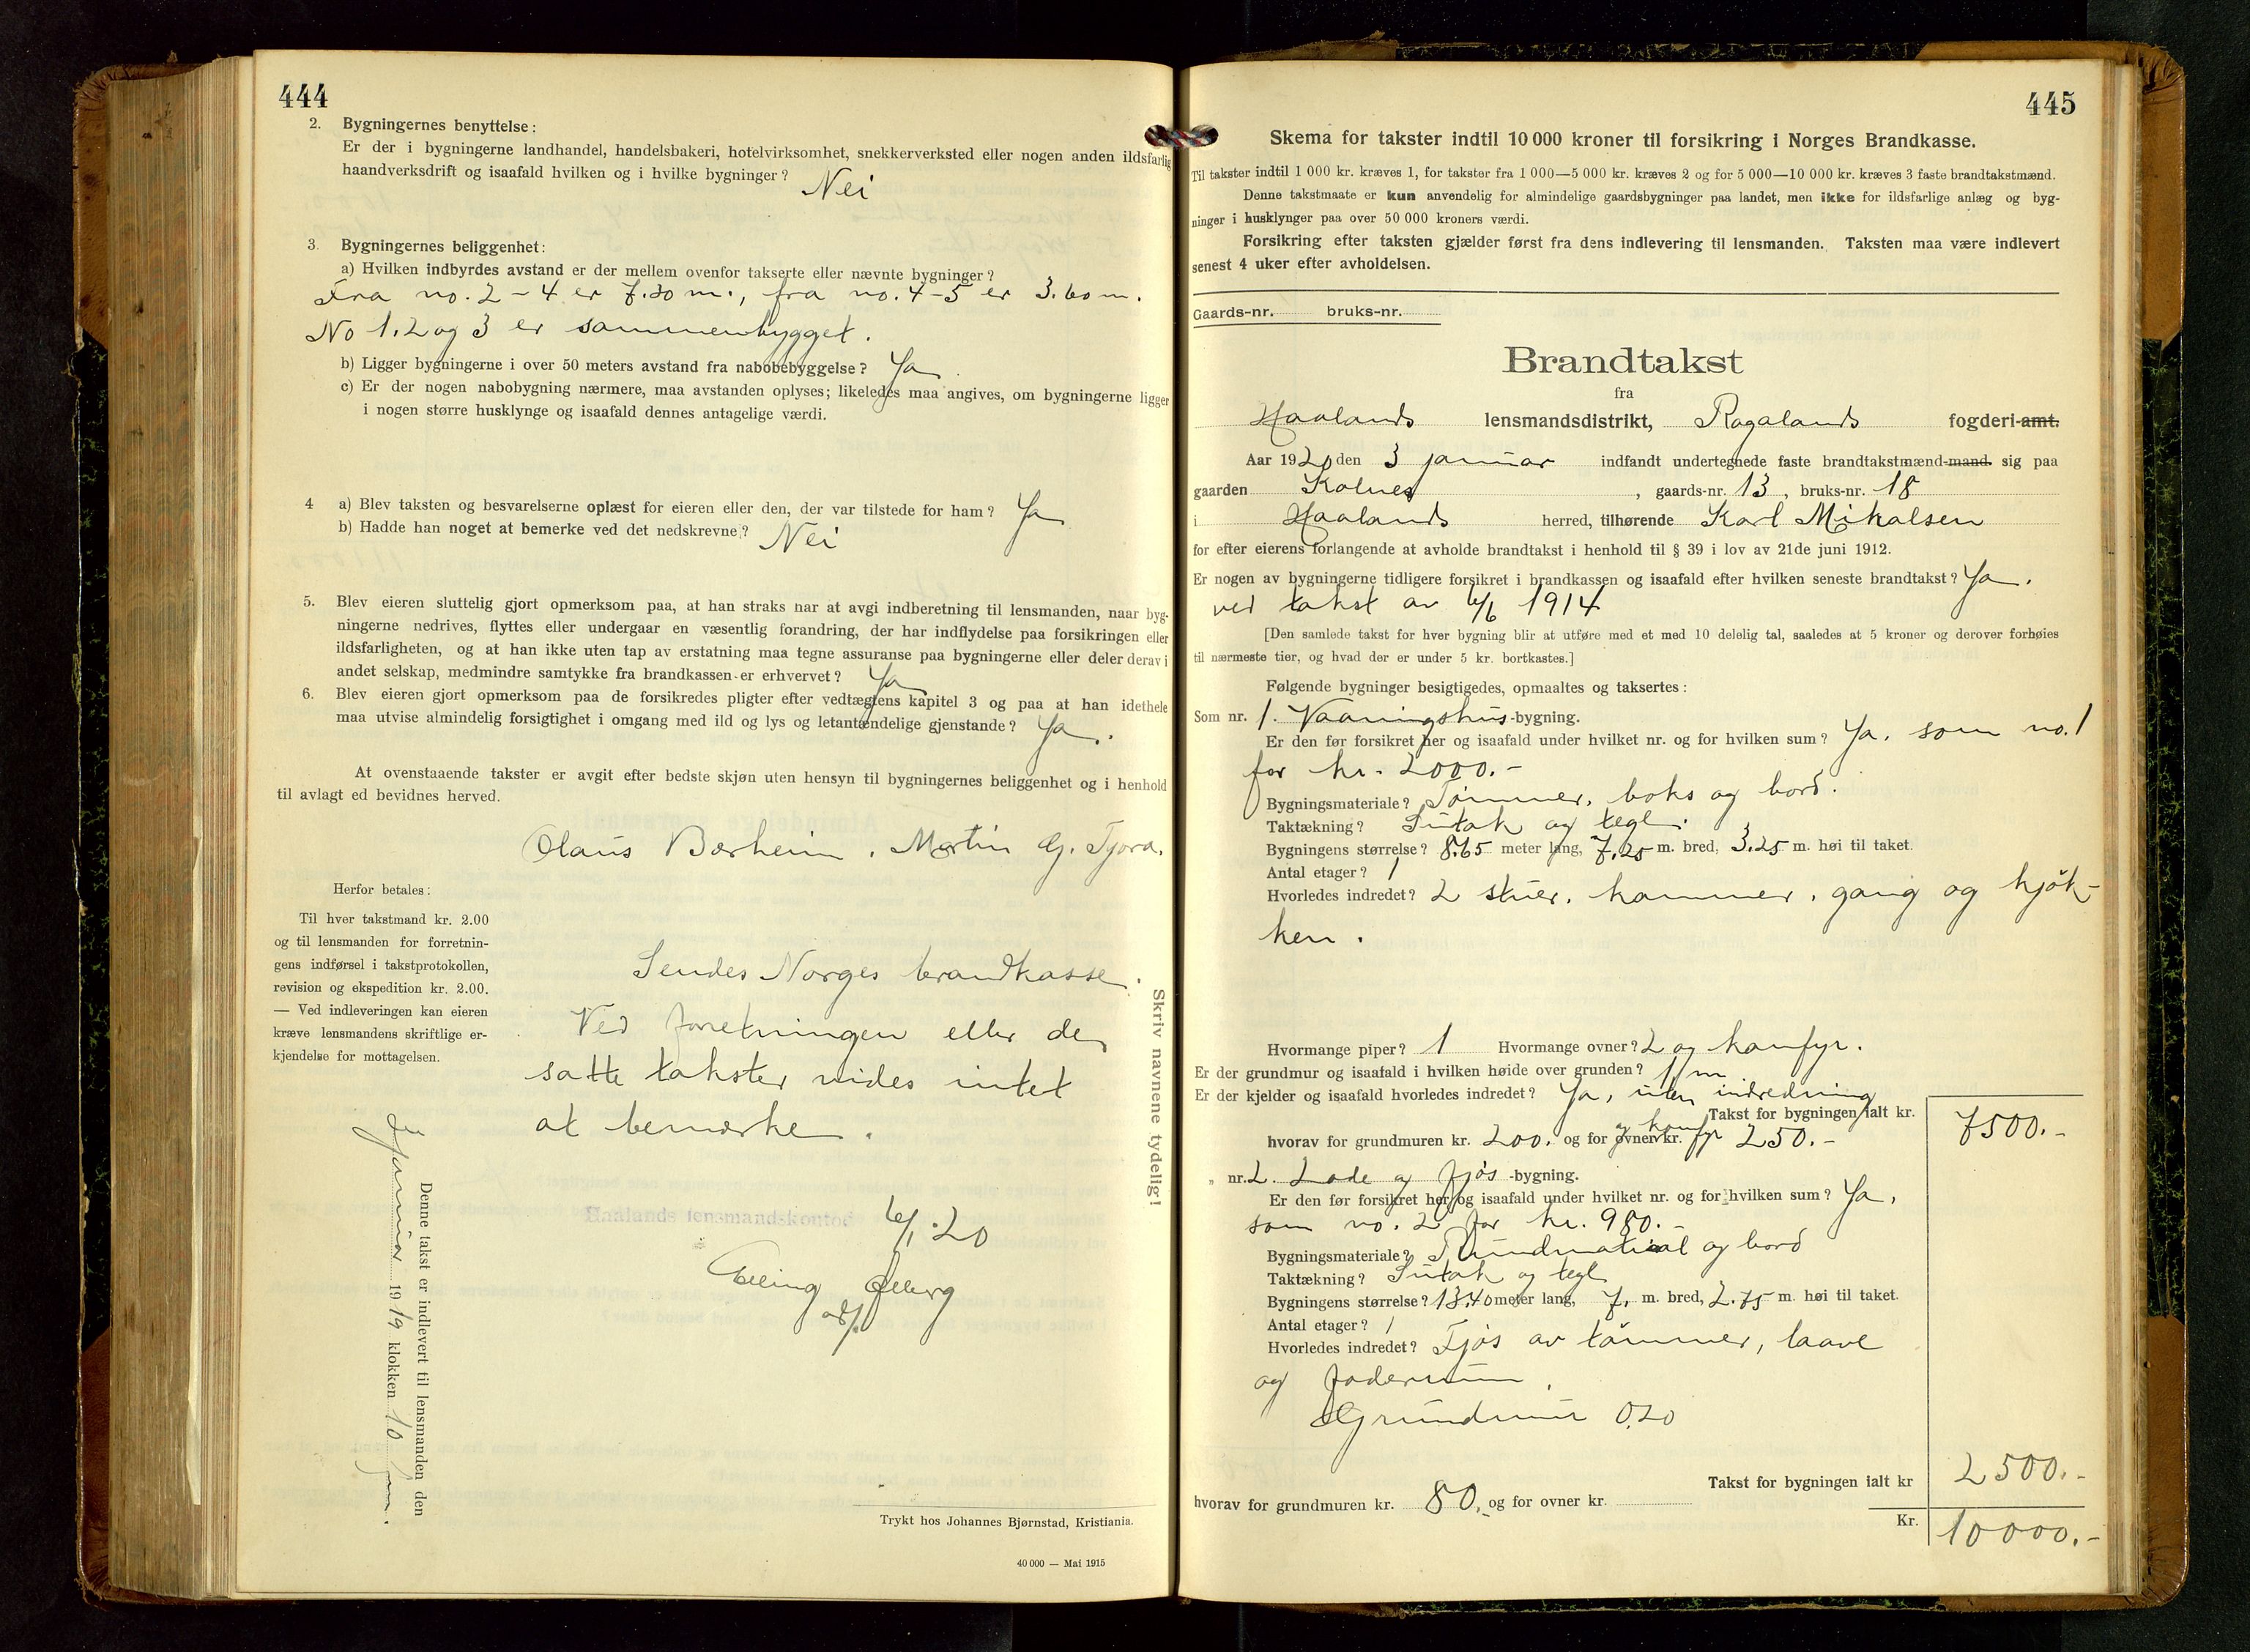 444
2. Bygningernes benyttelse:
Er der i bygningerne landhandel, handelsbakeri, hotelvirksomhet, snekkerverksted eller nogen anden ildsfarlig
haandverksdrift og isaafald hvilken og i hvilke bygninger? Nei
3. Bygningernes beliggenhet:
a) Hvilken indbyrdes avstand er der mellem ovenfor takserte eller nævnte bygninger?
Fra no. 2-4 er 7.30 m., fra no. 4-5 er 3.60 m.
No 1, 2 og 3 er sammenbygget.
b) Ligger bygningerne i over 50 meters avstand fra nabobebyggelse? Ja
c) Er der nogen nabobygning nærmere, maa avstanden oplyses; likeledes maa angives, om bygningerne ligger
i nogen større husklynge og isaafald dennes antagelige værdi.
4 a) Blev taksten og besvarelserne oplæst for eieren eller den, der var tilstede for ham? Ja
b) Hadde han noget at bemerke ved det nedskrevne? Nei
5. Blev eieren sluttelig gjort opmerksom paa, at han straks har at avgi indberetning til lensmanden, naar byg-
ningerne nedrives, flyttes eller undergaar en væsentlig forandring, der har indflydelse paa forsikringen eller
ildsfarligheten, og at han ikke uten tap av erstatning maa tegne assuranse paa bygningerne eller deler derav i
andet selskap, medmindre samtykke fra brandkassen er erhvervet? Ja
6. Blev eieren gjort opmerksom paa de forsikredes pligter efter vedtægtens kapitel 3 og paa at han idethele
maa utvise almindelig forsigtighet i omgang med ild og lys og letantændelige gjenstande? Ja.
At ovenstaaende takster er avgit efter bedste skjøn uten hensyn til bygningernes beliggenhet og i henhold
til avlagt ed bevidnes herved.
Olaus Bærheim. Martin Gj. Tjora.
Herfor betales:
Til hver takstmand kr. 2.00
og til lensmanden for forretnin-
gens indførsel i takstprotokollen,
revision og ekspedition kr. 2.00.
— Ved indleveringen kan eieren
kræve lensmandens skriftlige er-
kjendelse for mottagelsen.
Sendes Norges brandkasse.
Ved forretningen eller de
satte takster vides intet
at bemærke.
Haalands lensmandskontor 6/1.20
Elling
Skriv navnene tydelig!
Denne takst er indlevert til lensmanden den
januar 1919 klokken 10 fm.
Trykt hos Johannes Bjørnstad, Kristiania.
40 000 — Mai 1915
445
Skema for takster indtil 10 000 kroner til forsikring i Norges Brandkasse.
Til takster indtil 1 000 kr. kræves 1, for takster fra 1 000—5 000 kr. kræves 2 og for 5 000—10 000 kr. kræves 3 faste brandtakstmænd.
Denne takstmaate er kun anvendelig for almindelige gaardsbygninger paa landet, men ikke for ildsfarlige anlæg og byg-
ninger i husklynger paa over 50 000 kroners værdi.
Forsikring efter taksten gjælder først fra dens indlevering til lensmanden. Taksten maa være indlevert
senest 4 uker efter avholdelsen.
Gaards-nr. bruks-nr.
Brandtakst
fra
Haalands lensmandsdistrikt, Rogalands fogderi-amt.
Aar 1920 den 3 januar indfandt undertegnede faste brandtakstmænd-mand sig paa
gaarden Kolnes, gaards-nr. 13, bruks-nr. 18
i Haalands herred, tilhørende Karl Mikalsen
for efter eierens forlangende at avholde brandtakst i henhold til § 39 i lov av 21de juni 1912.
Er nogen av bygningerne tidligere forsikret i brandkassen og isaafald efter hvilken seneste brandtakst? Ja.
ved takst av 6/6 1914
[Den samlede takst for hver bygning blir at utføre med et med 10 delelig tal, saaledes at 5 kroner og derover forhøies
til nærmeste tier, og hvad der er under 5 kr. bortkastes.]
Følgende bygninger besigtigedes, opmaaltes og taksertes:
Som nr. 1. Vaaningshus-bygning.
Er den før forsikret her og isaafald under hvilket nr. og for hvilken sum? Ja, som no. 1
for kr. 2000.-
Bygningsmateriale? Tömmer, boks og bord.
Taktækning? Sutak og tegl.
Bygningens størrelse? 8,65 meter lang, 7,25 m. bred, 3.25 m. høi til taket.
Antal etager? 1
Hvorledes indredet? 2 stuer, kammer, gang og kjök-
ken.
Hvormange piper? 1 Hvormange ovner? 2 og komfyr.
Er der grundmur og isaafald i hvilken høide over grunden? 1 m
Er der kjelder og isaafald hvorledes indredet? Ja, uten indredning
Takst for bygningen ialt kr. 7500.-
hvorav for grundmuren kr. 200. og for ovner og komfyr kr. 250.-
„ nr. 2. Lade og fjös-bygning.
Er den før forsikret her og isaafald under hvilket nr. og for hvilken sum? Ja,
som no. 2 for kr. 980.-
Bygningsmateriale? og bord
Taktækning? Sutak og tegl
Bygningens størrelse? 13.40 meter lang, 7, m. bred, 2.75 m. høi til taket.
Antal etager? 1
Hvorledes indredet? Fjös av tömmer, laave
og foderrum.
Grundmur 0,20
Takst for bygningen ialt kr 2500.-
hvorav for grundmuren kr. 80.- og for ovner kr.
Kr. 10000.-